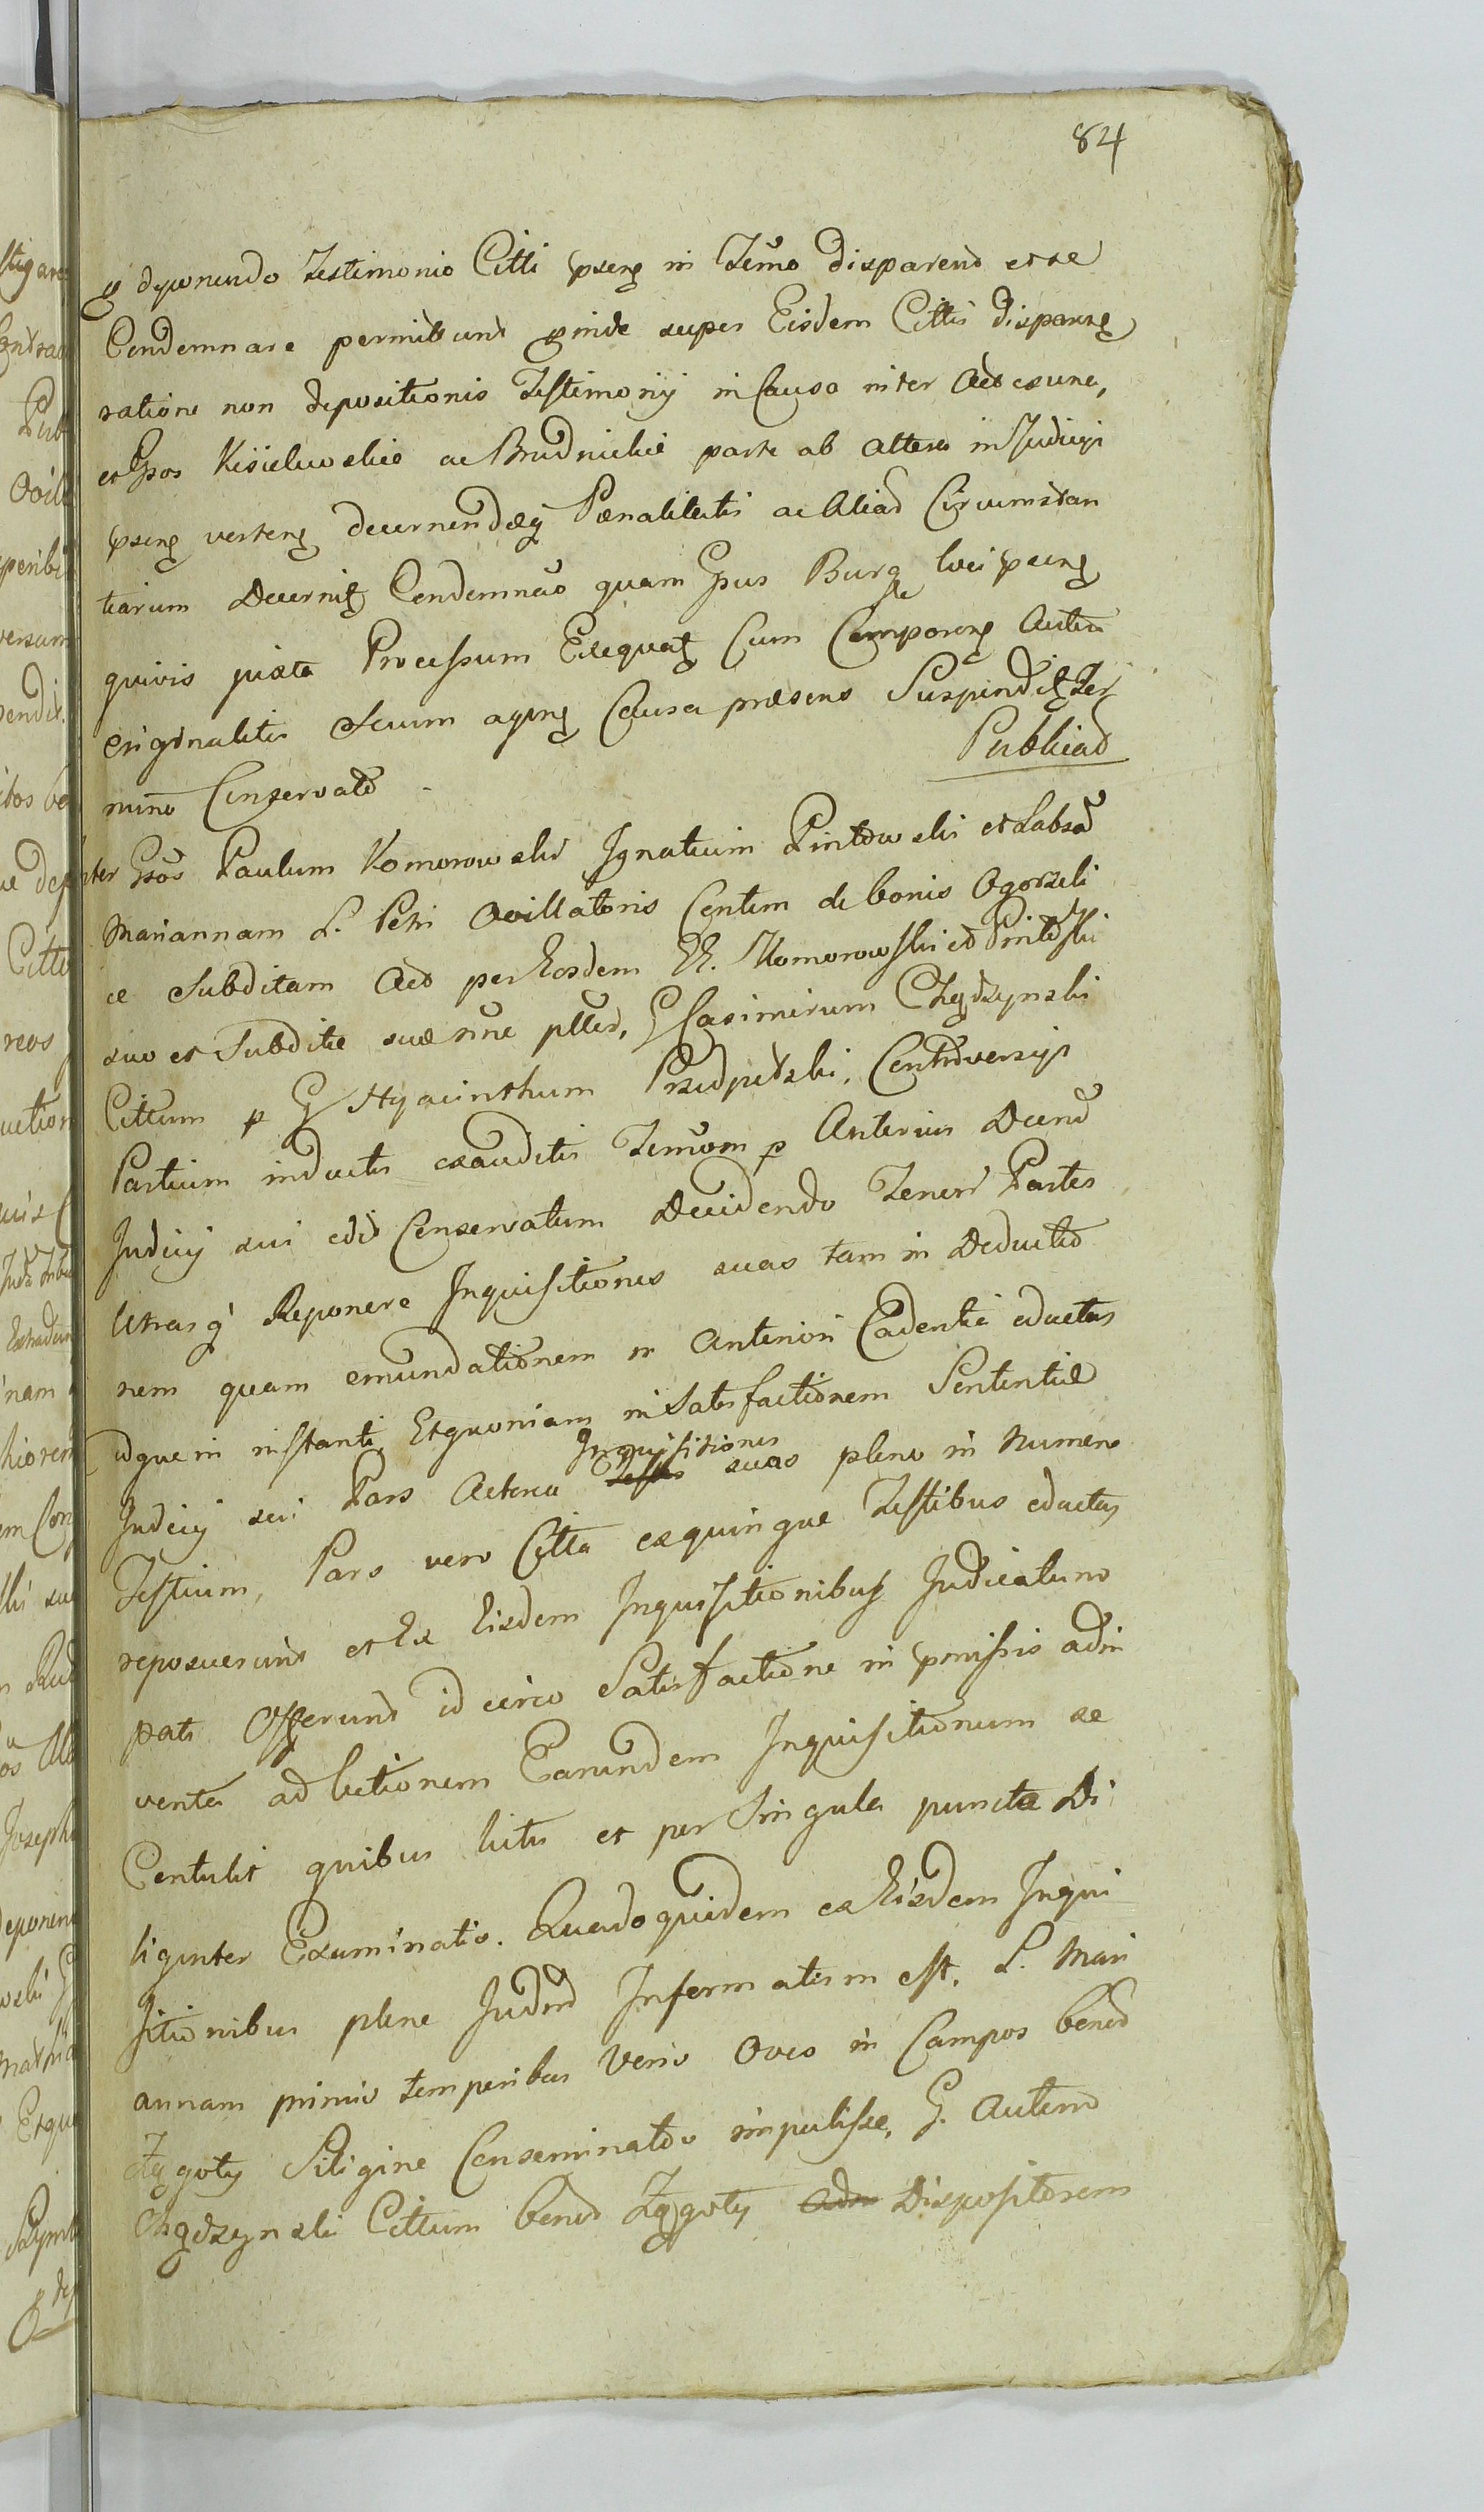 84
deponendo Testimonio Citti pseng in Termo disparend et se
Condemnare permittunt proinde super Eisdem Cittis dispareng
ratione non depositionis Testimonij in Causa inter Act ex una,
et Gsos Kisielewskie ac Brudnickie parte ab altera in Judicijs
pseng verteng decernendæq Pœnalitatis ac Aliad Circumstan
tiarum Decernit Condemnão quam Gsus Burg loci pseng
quivis juxta Processum Exequat Cum Comporeng Autem
originalitis Secum ageng Causa præsens Suspendit Ter
mino Conservato
Publicad
Inter Gsos Paulum Komorowski Ignatium Pintowski et Labsã
Mariannam L. Petri Ovillatoris Contem de bonis Ogorzeli
ce Subditam Act per Eosdem GG. Komorowski et Pintowski
suo et Subditæ suæ nne pltter, G Casimirum Chądzynski
Cittum p G Hyacinthum Przedpełski. Controversijs
Partium inductis exauditis Termom p Anterius Decrtũ
Judicij sui edit Conservatum Decidendo Teneri Partes
Utrasq Reponere Inquisitiones suas tam in Deductio
nem quam emundationem in Anteriori Cadentia eductas
idque in instanti, Et quoniam in Satisfactionem Sententiæ
Judicij sui Pars Actorea Inquisitiones suas pleno in Numero
Testium, Pars vero Citta ex quinque Testibus eductas
reposuerunt et Ex Eisdem Inquisitionibus Judicatum
pati Offerunt id circo Satisfactione in pmissis adin
venta ad lectionem Earundem Inquisitionum se
Contulit quibus lectis et per Singula puncta Di
ligenter Examinatis. Quando quidem ex Eisdem Inqui
sitionibus plene Judm Informatum est. L. Mari
annam primis temporibus Veris Oves in Campos bonor
Zągoty Siligine Conseminatos impulisse, G. Autem
Chądzynski Cittum bonor Zągoty Dispositorem